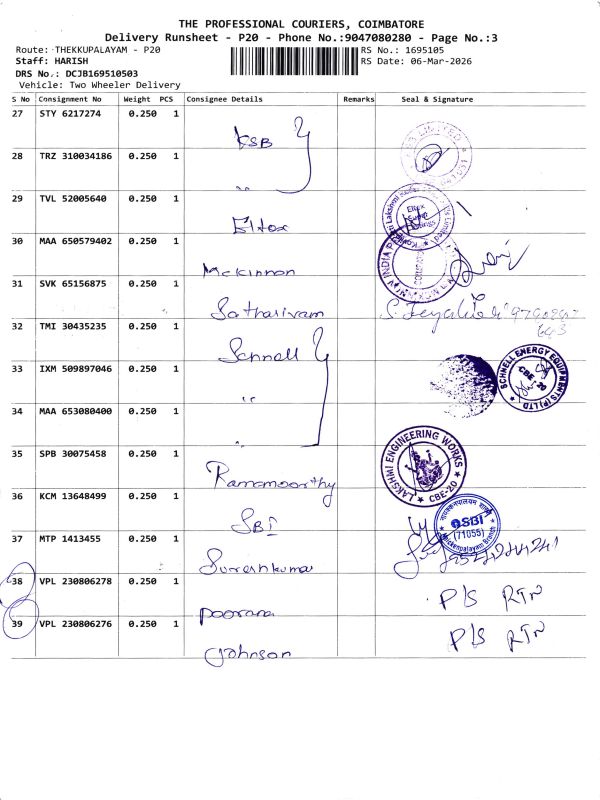 THE PROFESSIONAL COURIERS, COIMBATORE
Delivery Runsheet - P20 - Phone No.:9047080280 - Page No.:3
Route: THEKKUPALAYAM - P20
RS No.: 1695105
Staff: HARISH
RS Date: 06-Mar-2026
DRS No.: DCJB169510503
Vehicle: Two Wheeler Delivery
S No Consignment No Weight PCS Consignee Details Remarks Seal & Signature
27 STY 6217274 0.250 1 KSB
28 TRZ 310034186 0.250 1 "
29 TVL 52005640 0.250 1 Eltex
30 MAA 650579402 0.250 1 Mckinnon
31 SVK 65156875 0.250 1
32 TMI 30435235 0.250 1 Schnell
33 IXM 509897046 0.250 1 "
SCHNELL ENERGY EQUIPMENTS (P) LTD
CBE-20
34 MAA 653080400 0.250 1 "
35 SPB 30075458 0.250 1 Ramamoorthy
LAKSHMI ENGINEERING WORKS
CBE-20
36 KCM 13648499 0.250 1 SBI
SBI
(71055)
37 MTP 1413455 0.250 1 Sureshkumar
38 VPL 230806278 0.250 1 Poorana P/S RTN
39 VPL 230806276 0.250 1 Johnson P/S RTN